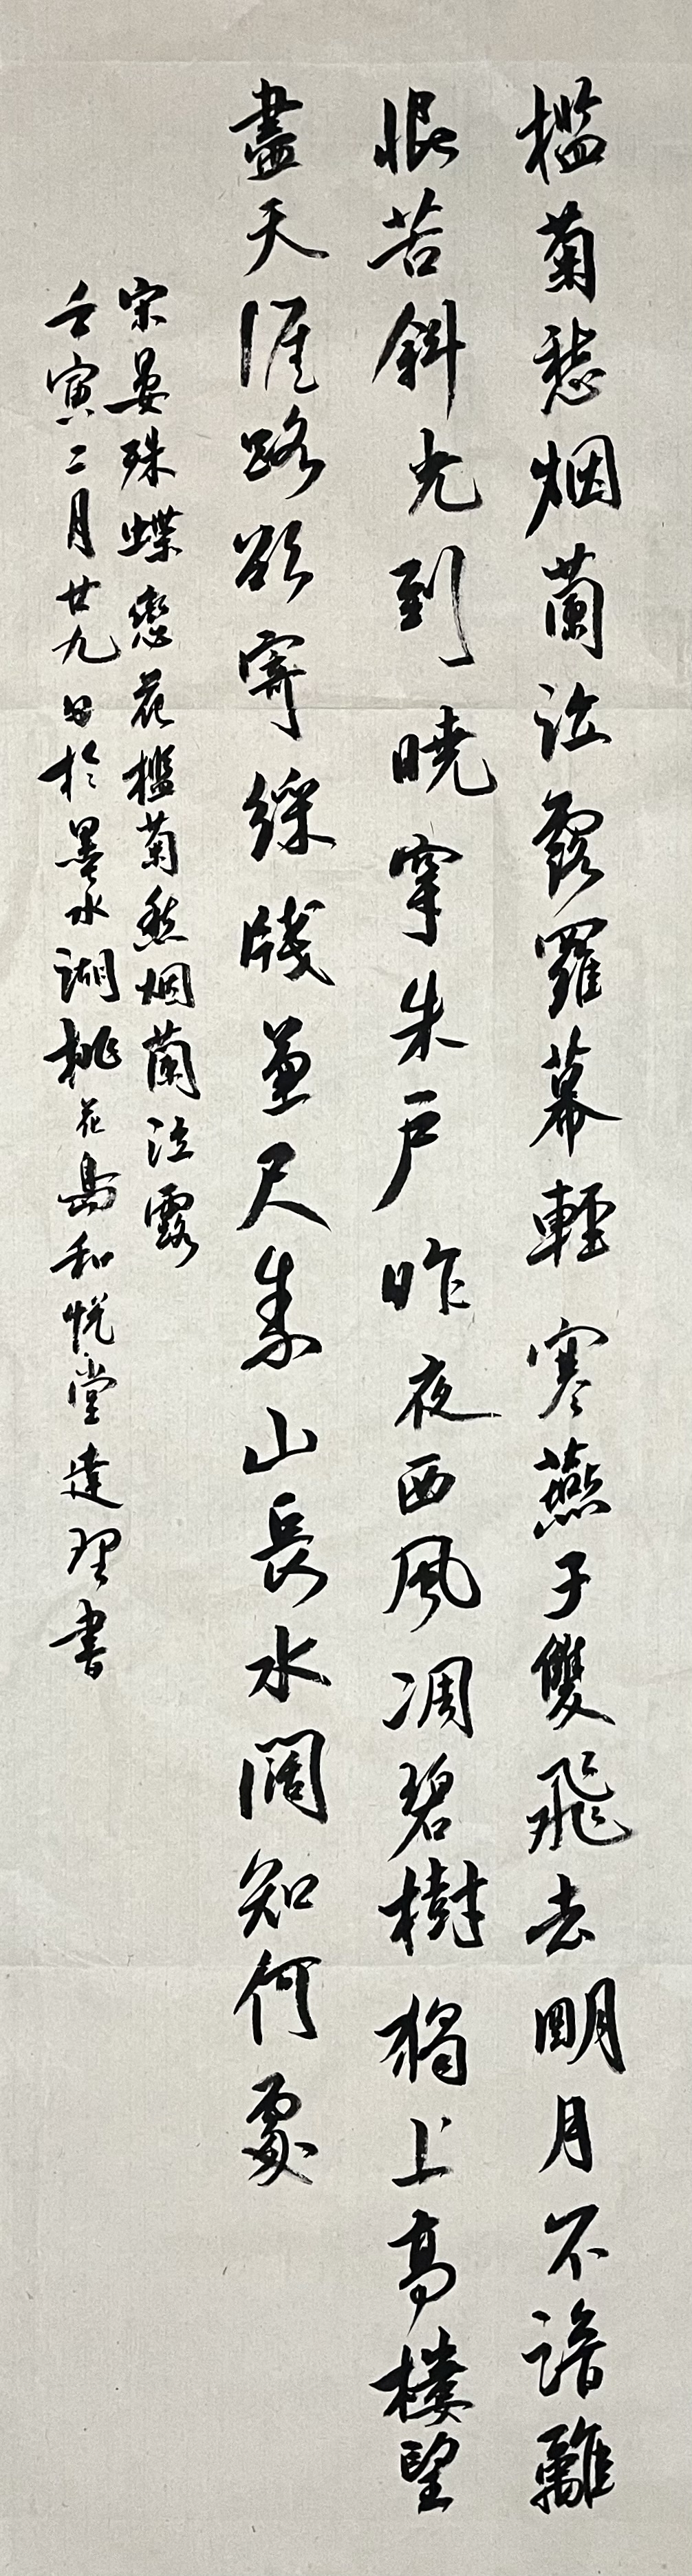 槛菊愁烟蘭泣露羅幕輕寒燕子雙飛去明月不諳離
恨苦斜光到曉穿朱户昨夜西風凋碧樹獨上高樓望
盡天涯路欲寄綵牋兼尺素山長水闊知何處
宋晏殊蝶戀花檻菊愁烟蘭泣露
壬寅二月廿九日於墨水湖桃花島和悦堂建理書